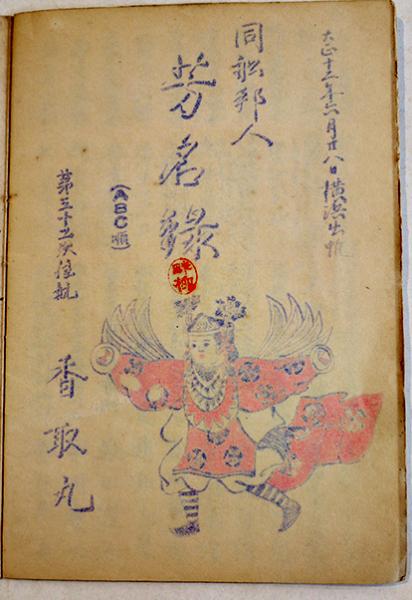 大正十三年六月廿八日横濱出帆
同舩邦人
芳名錄
(ABC順)
第三十五次往航
香取丸